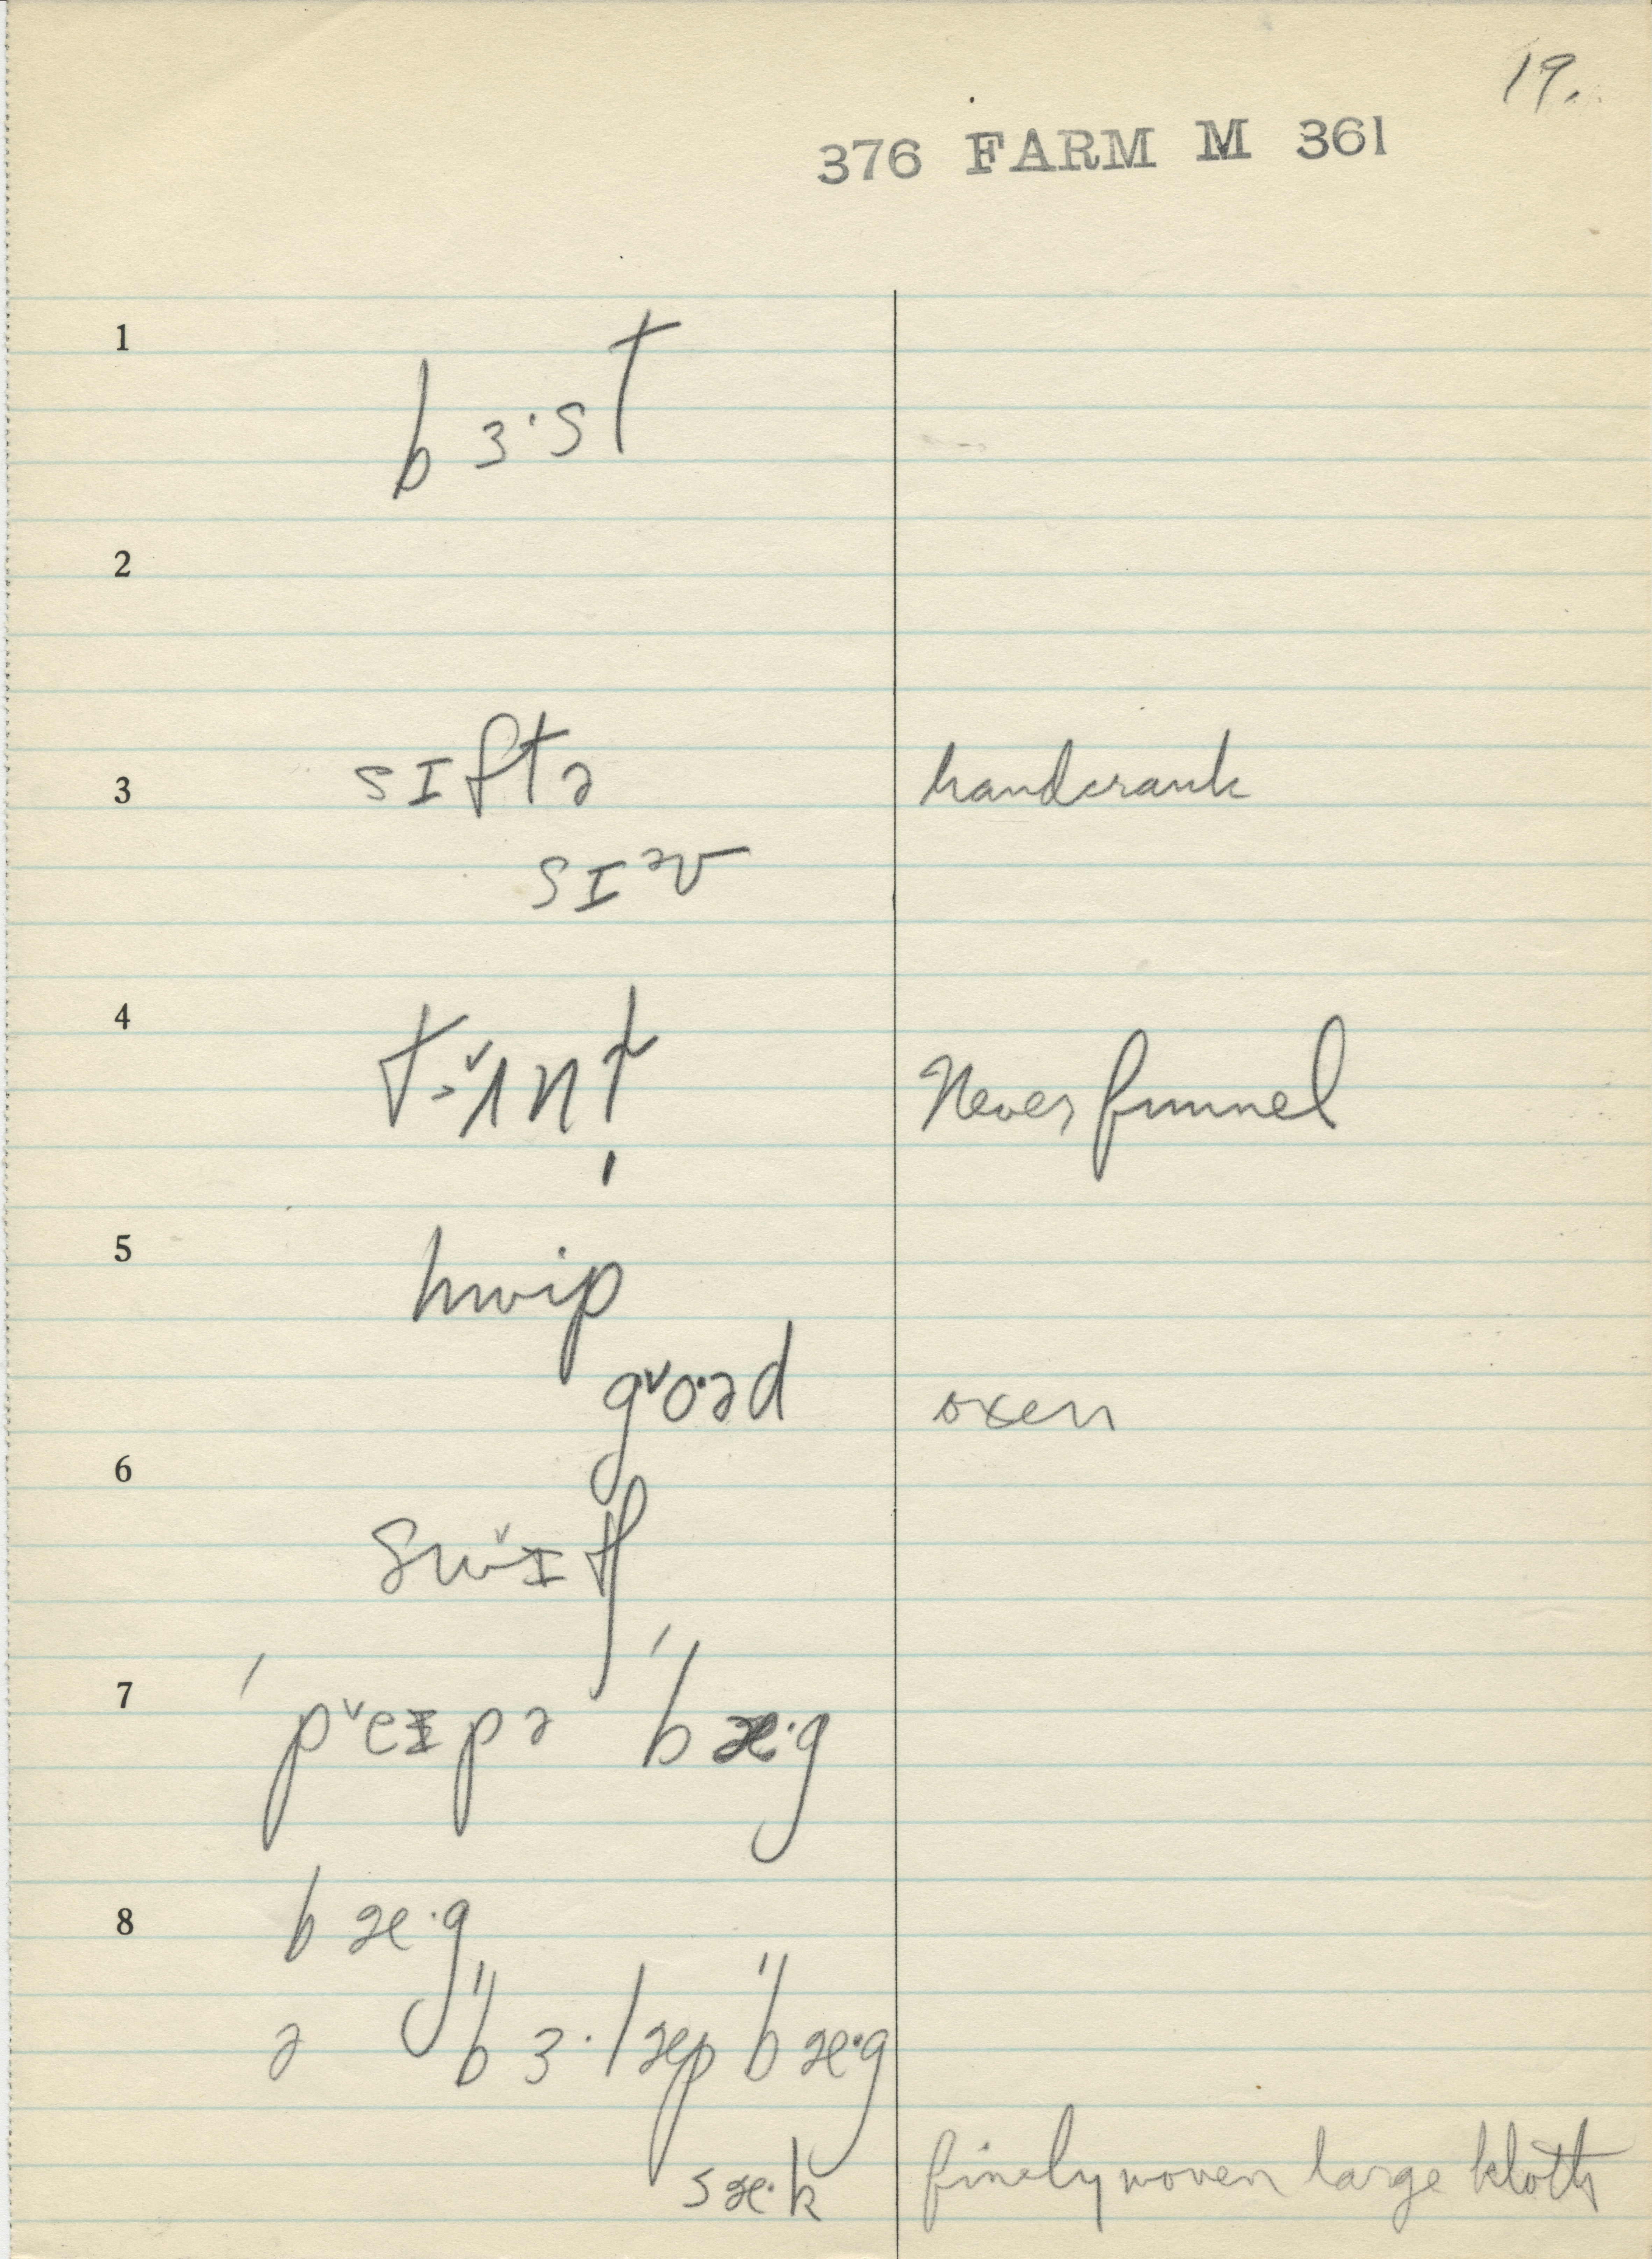 19.
376 FARM M 361
1
bɜ·st
2
3 sɪftə handcrank
sɪᵊv
4 Never funnel
5 hwip
gˇo·əd oxen
6
swˇɪ
7 ˈpˇeɪpə ˈbæ·g
8 bæ·g
ə ˈbɜ·læp ˈbæ·g
sæ·k finely woven large kloth